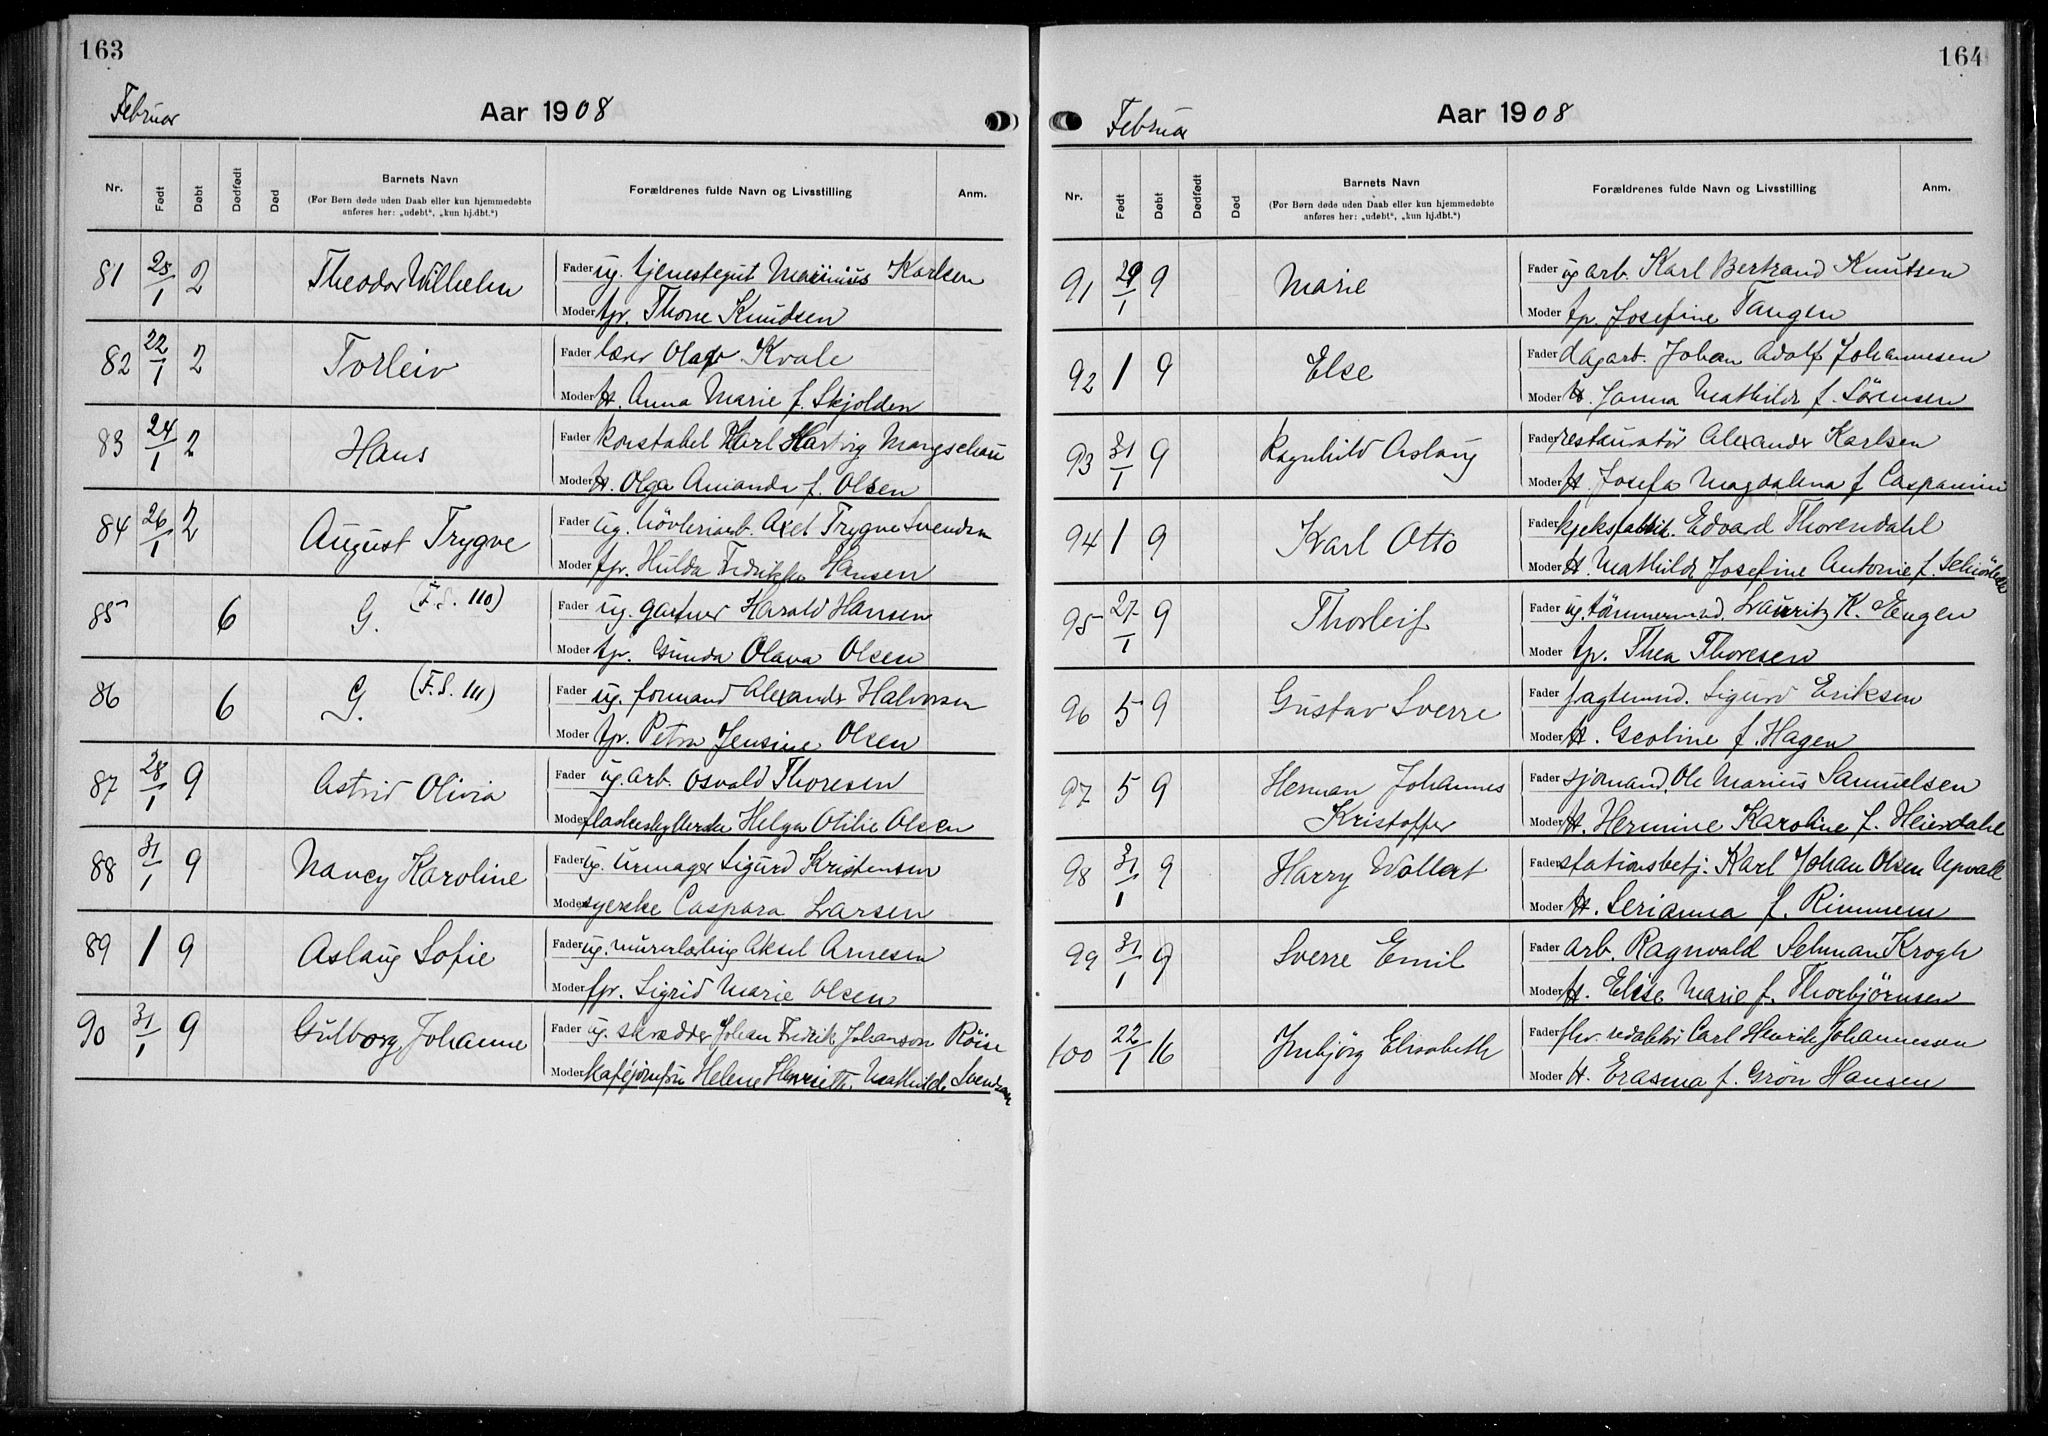 163
Februar
Aar 1908
Nr.
Født
Døbt
Dødfødt
Død
Barnets Navn
(For Børn døde uden Daab eller kun hjemmedøbte
anføres her: „udøbt“, „kun hj.dbt.“)
Forældrenes fulde Navn og Livsstilling
Anm.
81 25/1 2 Theodor Wilhelm Fader ug. tjenestegut Marinius Karlsen
Moder tp. Thone Knudsen
82 22/1 2 Torleiv Fader lærer Olaf Kvale
Moder H. Anna Marie f. Skjolden
83 24/1 2 Hans Fader konstabel Karl Hartvig Mangschau
Moder H. Olga Amanda f. Olsen
84 26/1 2 August Trygve Fader ug. høvleriarb. Axel Trygve Svendsen
Moder fp. Hulda Fredrikke Hansen
85 6 G. (F.S. 110) Fader ug. gartner Harald Hansen
Moder tp. Gunda Olava Olsen
86 6 G. (F.S. 111) Fader ug. formand Alexander Halvorsen
Moder tp. Petra Jensine Olsen
87 28/1 9 Astrid Olivia Fader ug. arb. Osvald Thoresen
Moder flaskeskyllerske Helga Otilie Olsen
88 31/1 9 Nancy Karoline Fader ug. urmager Sigurd Kristensen
Moder syerske Caspara Larsen
89 1 9 Aslaug Sofie Fader ug. murerlærling Aksel Arnesen
Moder fp. Sigrid Marie Olsen
90 31/1 9 Gulborg Johanne Fader ug. skrædder Johan Fredrik Johanson Röise
Moder Kaféjomfru Helene Henriette Mathilde Svendsen
164
Februar
Aar 1908
Nr.
Født
Døbt
Dødfødt
Død
Barnets Navn
(For Børn døde uden Daab eller kun hjemmedøbte
anføres her: „udøbt“, „kun hj.dbt.“)
Forældrenes fulde Navn og Livsstilling
Anm.
91 29/1 9 Marie Fader ug arb. Karl Bertrand Knutsen
Moder tp. Josefine Tangen
92 1 9 Else Fader dagarb. Johan Adolf Johannesen
Moder H. Janna Mathilde f. Sörensen
93 31/1 9 Ragnhild Aslaug Fader restauratör Alexander Karlsen
Moder H. Josefa Magdalena f
94 1 9 Karl Otto Fader kjeksfabrik. Edvard Thorendahl
Moder H. Mathilde Josefine Antonie f.
95 27/1 9 Thorleif Fader ug. tömmermd. Lauritz K. Engen
Moder tp. Thea Thoresen
96 5 9 Gustav Sverre Fader fragtemnd. Sigurd Eriksen
Moder H. Geoline f. Hagen
97 5 9 Herman Johannes Fader sjømand. Ole Marius Samuelsen
Kristoffer Moder H. Hermine Karoline f. Heierdahl
98 31/1 9 Harry Wollert Fader stationsbetj. Karl Johan Olsen Upvall
Moder H. Serianna f. Rimmem
99 31/1 9 Sverre Emil Fader arb. Ragnvald Selman Krogh
Moder H. Elise Marie f. Thorbjörnsen
100 22/1 16 Ingbjörg Elisabeth Fader fhv. redaktör Carl Henrik Johannessen
Moder H. Erasma f. Grön Hansen